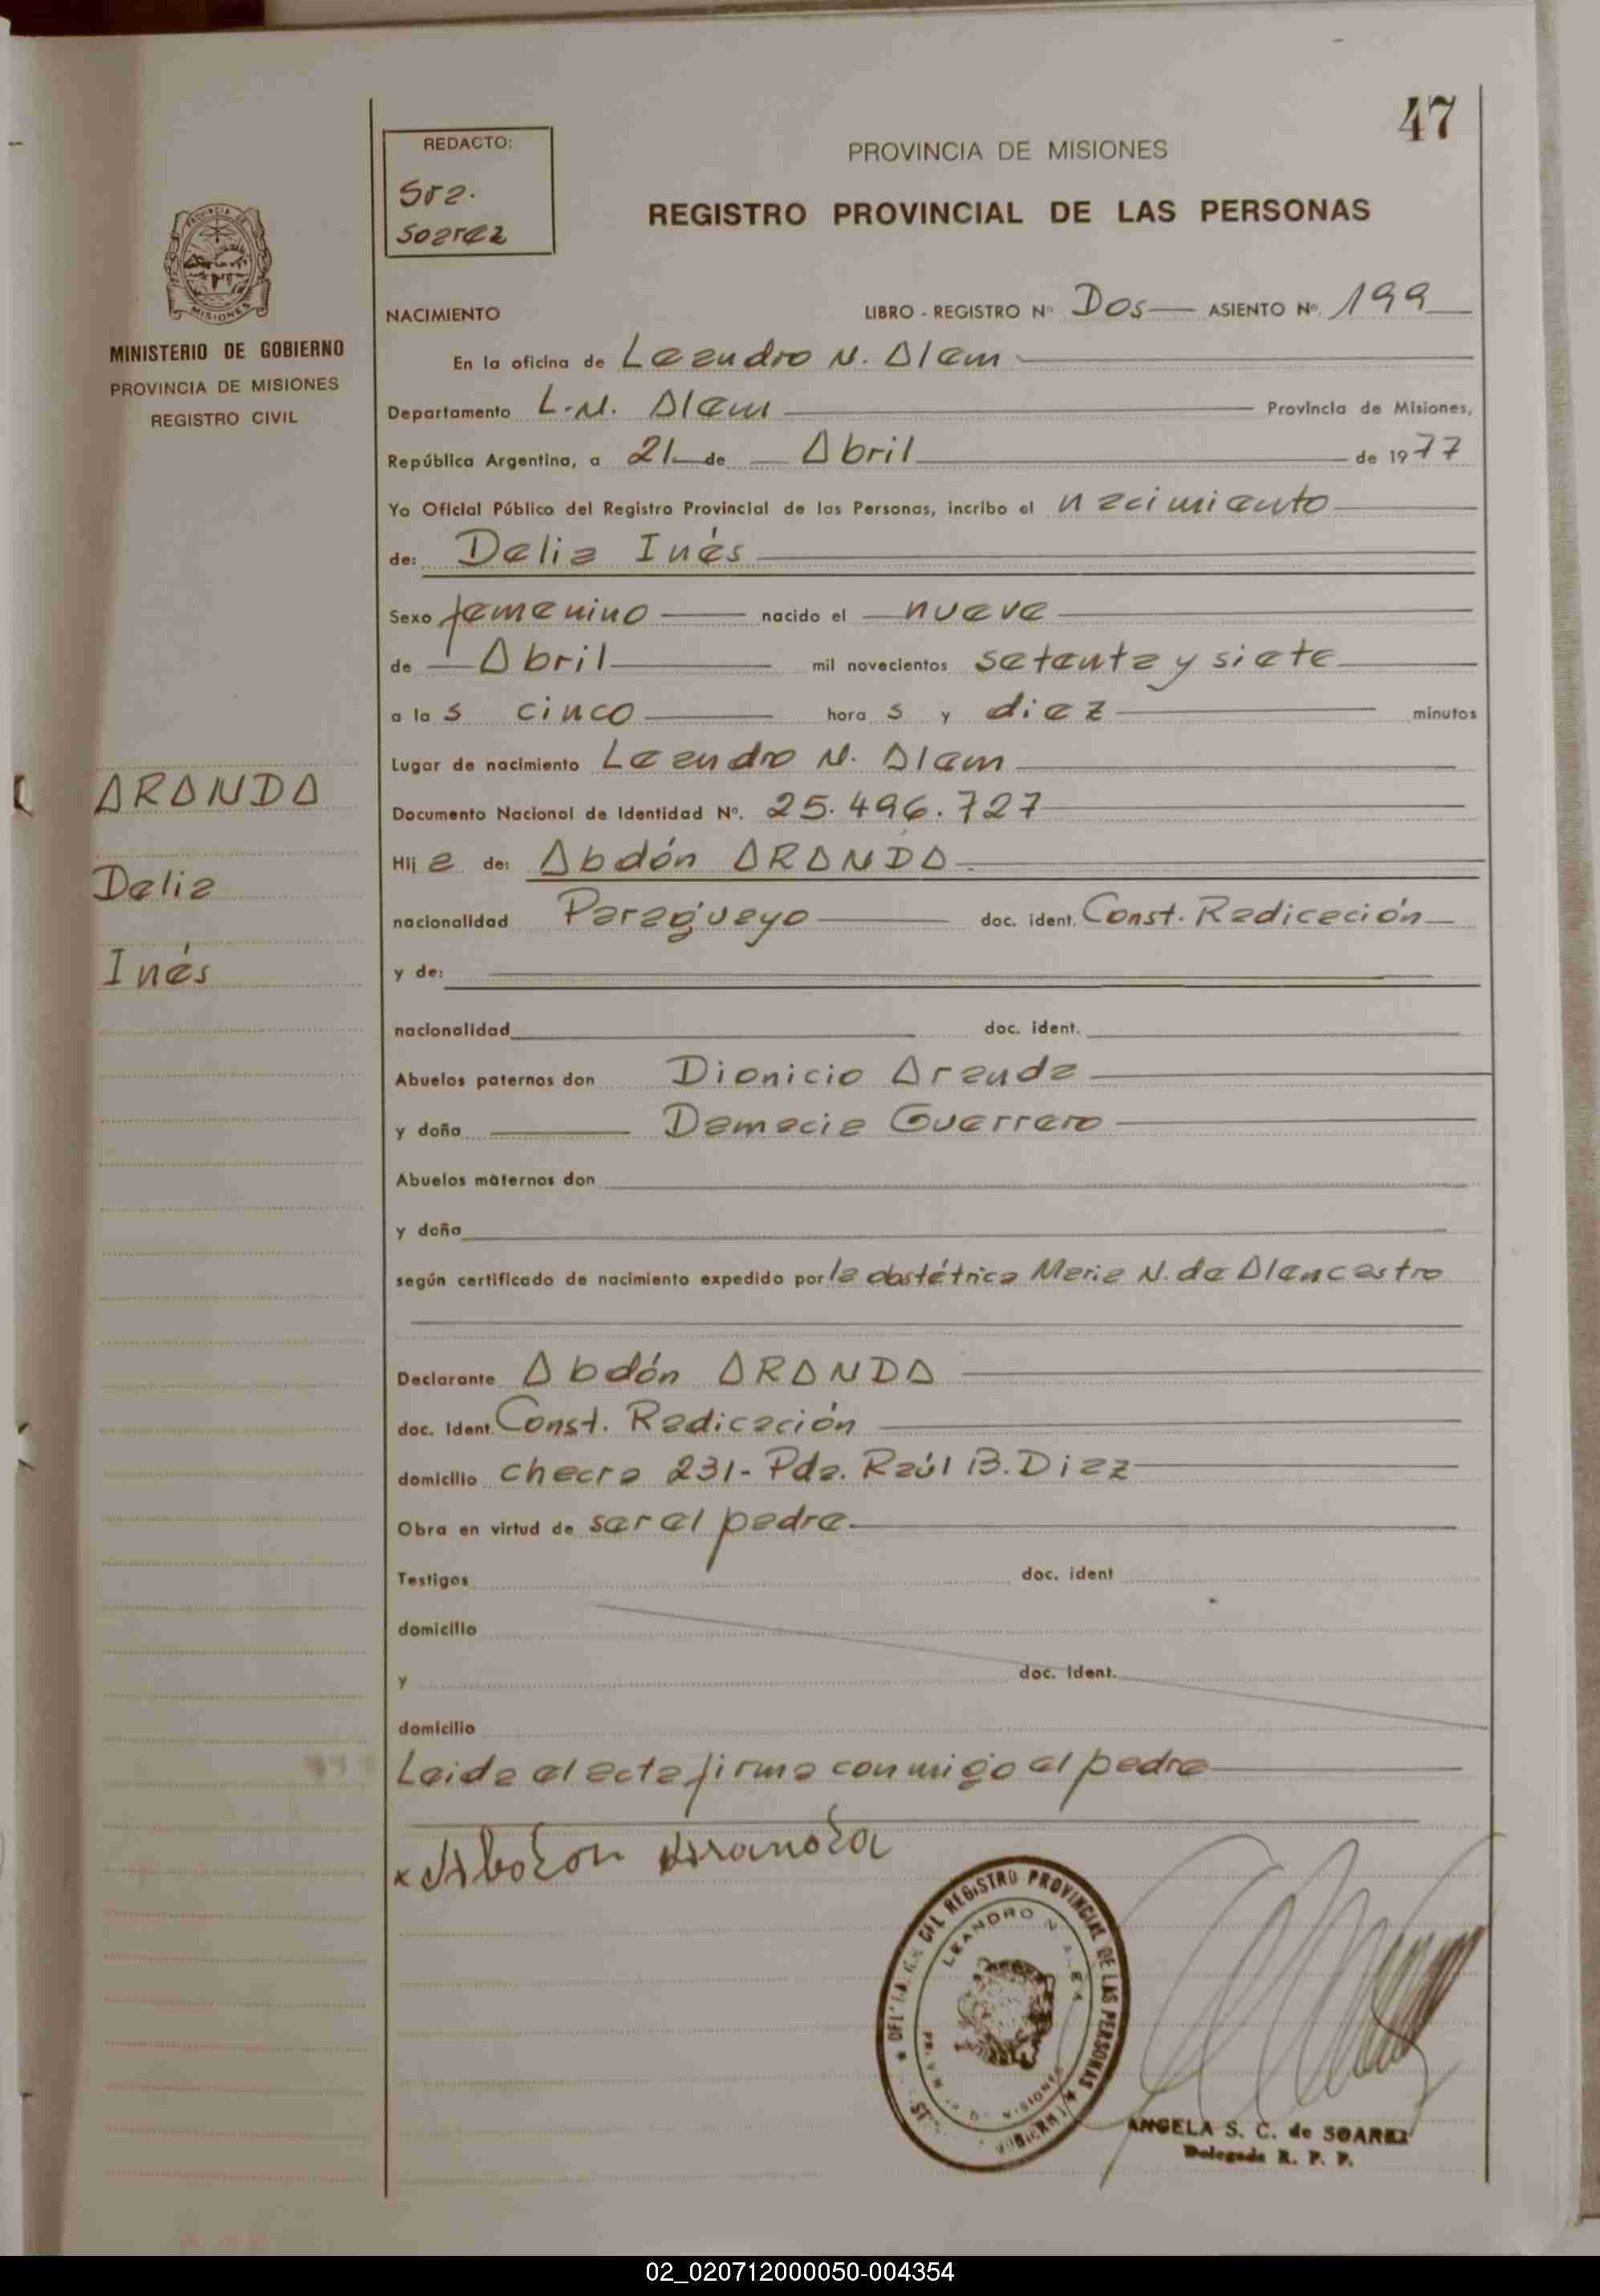 47
REDACTO:
Sra.
Soarez
PROVINCIA DE MISIONES
REGISTRO PROVINCIAL DE LAS PERSONAS
PROVINCIA DE
MISIONES
MINISTERIO DE GOBIERNO
PROVINCIA DE MISIONES
REGISTRO CIVIL
NACIMIENTO LIBRO - REGISTRO Nº Dos ASIENTO Nº. 199
En la oficina de Leandro N. Alem
Departamento L.N. Alem Provincia de Misiones,
República Argentina, a 21 de Abril de 1977
Yo Oficial Público del Registro Provincial de las Personas, incribo el nacimiento
de: Delia Inés
Sexo femenino nacido el nueve
de Abril mil novecientos setenta y siete
a la s cinco hora s y diez minutos
Lugar de nacimiento Leandro N. Alem
Documento Nacional de Identidad Nº. 25.496.727
Hij a de: Abdón ARANDA
nacionalidad Paraguayo doc. ident. Const. Radicación
y de:
nacionalidad doc. ident.
Abuelos paternos don Dionicio Aranda
y doña Damacia Guerrero
Abuelos maternos don
y doña
según certificado de nacimiento expedido por la obstétrica Maria N. de Alencastro
Declarante Abdón ARANDA
doc. Ident. Const. Radicación
domicilio checra 231- Pda. Raúl B. Diaz
Obra en virtud de ser el padre
Testigos doc. ident
domicilio
y doc. Ident.
domicilio
Leida el acta firma conmigo el padre
ARANDA
Delia
Inés
x Abdon Aranda
DEL REGISTRO PROVINCIAL DE LAS PERSONAS
LEANDRO N. ALEM
MISIONES
ANGELA S. C. de SOAREZ
Delegada R. P. P.
02_020712000050-004354